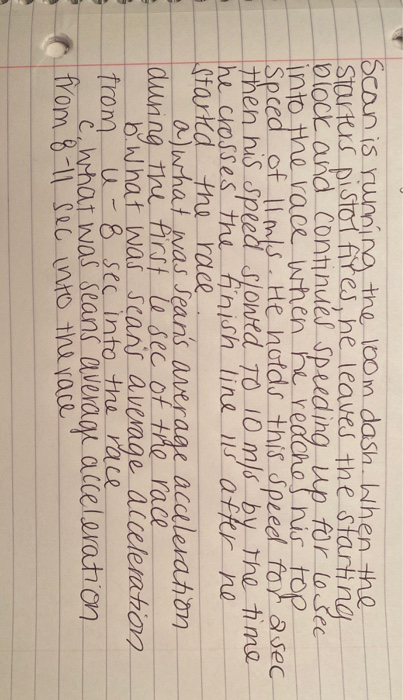 Sean is running the 100m dash. When the
starters pistol fires, he leaves the starting
block and continues speeding up for 6 sec
into the race when he reaches his top
speed of 11 m/s. He holds this speed for 2 sec
then his speed slowed to 10 m/s by the time
he crosses the finish line 11s after he
startd the race.
a) what was Sean's average accleration
during the first 6 sec of the race
b what was sean's average acceleration
from 6 - 8 sec into the race
c, what was seans average acceleration
from 8-11 sec into the race